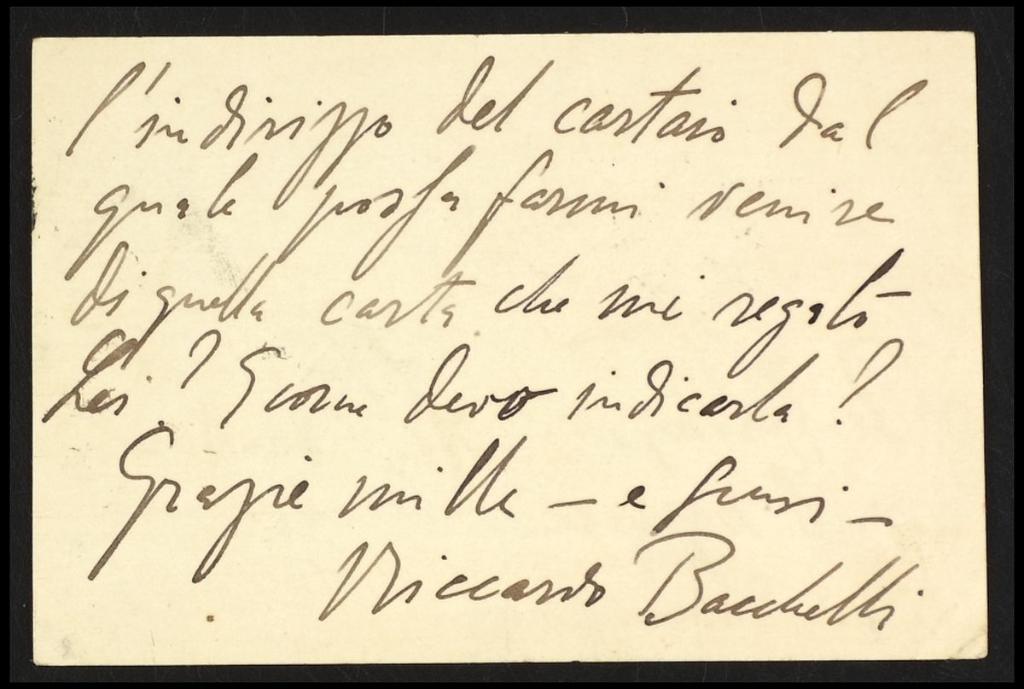 l'indirizzo del cartaio dal
quale possa farmi venire
di quella carta che mi regalò
Lei? E come devo indicarla?
Grazie mille — e scusi —
Riccardo Bacchelli